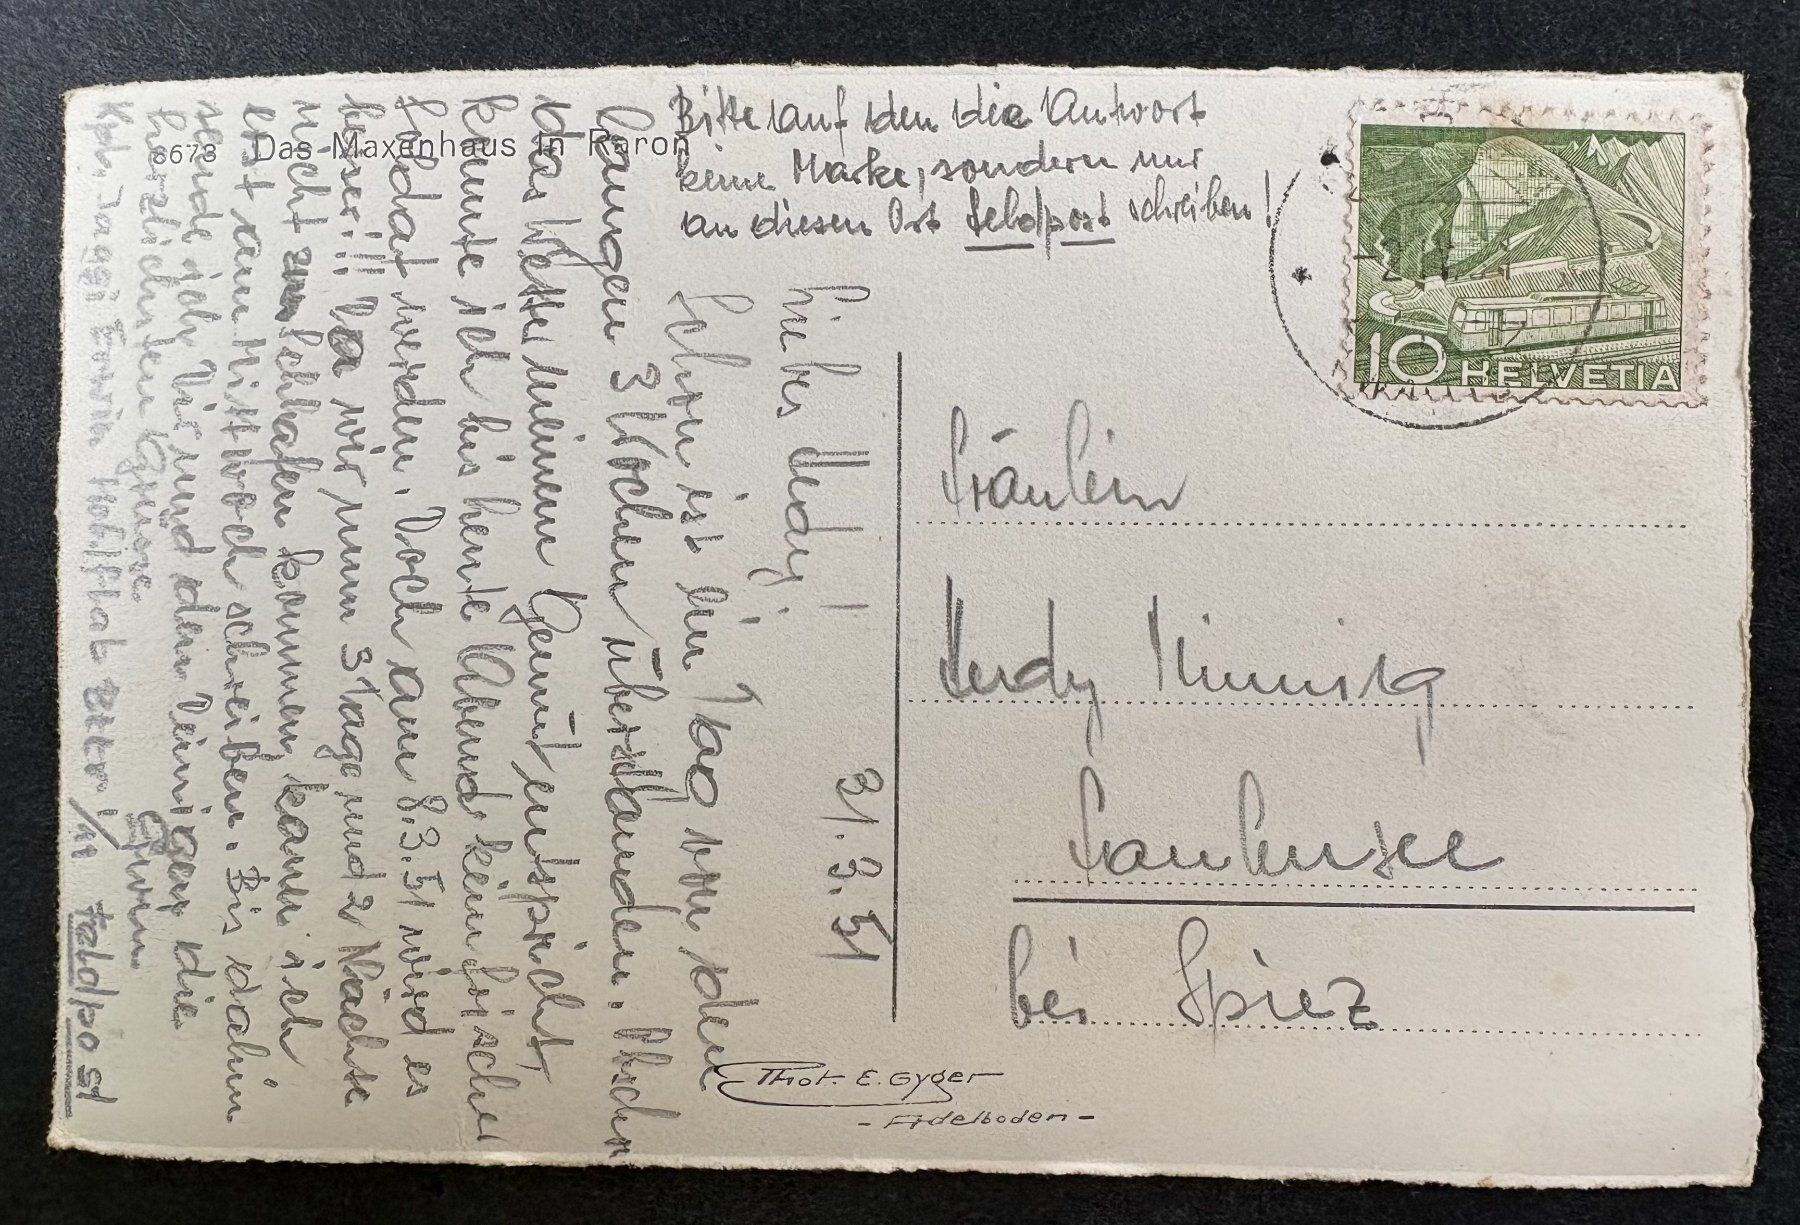 8673 Das Maxenhaus in Raron
Bitte auf den die Antwort
keine Marke, sondern nur
an diesen Ort Feldpost schreiben!
10 HELVETIA
31. 3. 51
Liebes Hedy!
Schon ist ein Tag von den
langen 3 Wochen überstanden. Obschon
das Wetter meinem Gemüt entspricht
konnte ich bis heute Abend kein frischer
Soldat werden. Doch am 8.3.51 wird es
besser!!! Da wir nun 3 Tage und 2 Nächte
nicht zum schlafen kommen, kann ich
erst am Mittwoch schreiben. Bis dahin
sende ich Dir und den Deinigen die
herzlichsten Grüsse.
Erwin
Kpl. Jaggi Erwin Mob. Flab Bttr. /11 Feldpost
Fräulein
Hedy
Faulensee
bei Spiez
Phot. E. Gyger
- Adelboden -